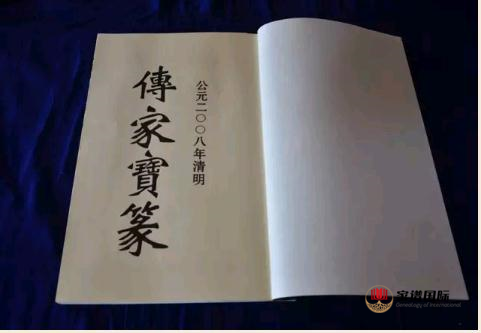 公元二〇〇八年清明
傳家寶篆
家谱国际
Genealogy of International